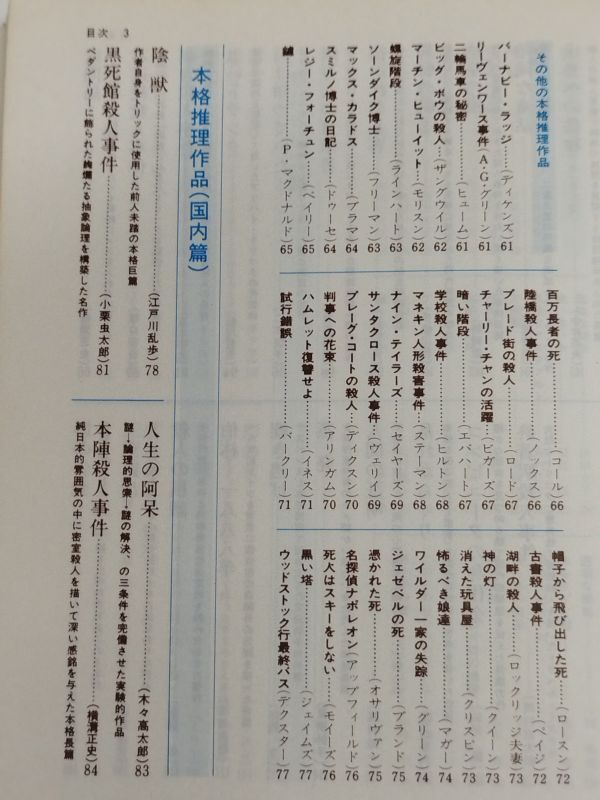 目次 3
その他の本格推理作品
バーナビー・ラッジ…………(ディケンズ) 61
リーヴェンワース事件(A・G・グリーン) 61
二輪馬車の秘密…………(ヒューム) 61
ビッグ・ボウの殺人…(ザングウイル) 62
マーチン・ヒューイット…(モリスン) 62
螺旋階段…………(ラインハート) 63
ソーンダイク博士…………(フリーマン) 63
マックス・カラドス…………(ブラマ) 64
スミルノ博士の日記…………(ドゥーセ) 64
レジー・フォーチュン…………(ベイリー) 65
鑢…………(P・マクドナルド) 65
百万長者の死…………(コール) 66
陸橋殺人事件…………(ノックス) 66
ブレード街の殺人…………(ロード) 67
チャーリー・チャンの活躍…(ビガーズ) 67
暗い階段…………(エバハート) 67
学校殺人事件…………(ヒルトン) 68
マネキン人形殺害事件…(ステーマン) 68
ナイン・テイラーズ…………(セイヤーズ) 69
サンタクロース殺人事件…(ヴェリイ) 69
プレーグ・コートの殺人…(ディクスン) 70
判事への花束…………(アリンガム) 70
ハムレット復讐せよ…………(イネス) 71
試行錯誤…………(バークリー) 71
帽子から飛び出した死…………(ロースン) 72
古書殺人事件…………(ペイジ) 72
湖畔の殺人…………(ロックリッジ夫妻) 73
神の灯…………(クイーン) 73
消えた玩具屋…………(クリスピン) 73
怖るべき娘達…………(マガー) 74
ワイルダー一家の失踪…(グリーン) 74
ジェゼベルの死…………(ブランド) 75
憑かれた死…………(オサリヴァン) 75
名探偵ナポレオン(アップフィールド) 76
死人はスキーをしない…………(モイーズ) 76
黒い塔…………(ジェイムズ) 77
ウッドストック行最終バス(デクスター) 77
本格推理作品(国内篇)
陰獣…………(江戸川乱歩) 78
作者自身をトリックに使用した前人未踏の本格巨篇
黒死館殺人事件…………(小栗虫太郎) 81
ペダントリーに飾られた絢爛たる抽象論理を構築した名作
人生の阿呆…………(木々高太郎) 83
謎→論理的思索→謎の解決、の三条件を完備させた実験的作品
本陣殺人事件…………(横溝正史) 84
純日本的雰囲気の中に密室殺人を描いて深い感銘を与えた本格長篇